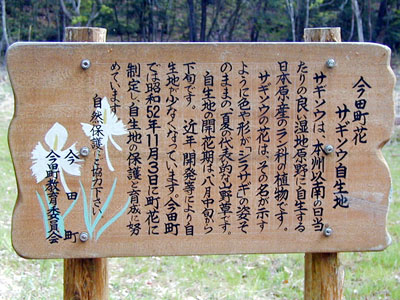 今田町花
サギソウ自生地
サギソウは、本州以南の日当
たりの良い湿地原野に自生する
日本原産のラン科の植物です。
サギソウの花は、その名が示す
ように色や形がシラサギの姿そ
のままの、夏の代表的な山野草です。
自生地の開花期は、八月中旬から
下旬です。近年、開発等により自
生地が少なくなっています。今田町
では昭和52年11月3日に町花に
制定し、自生地の保護と育成に努
めています。
自然保護に協力下さい。
今田町
今田町教育委員会